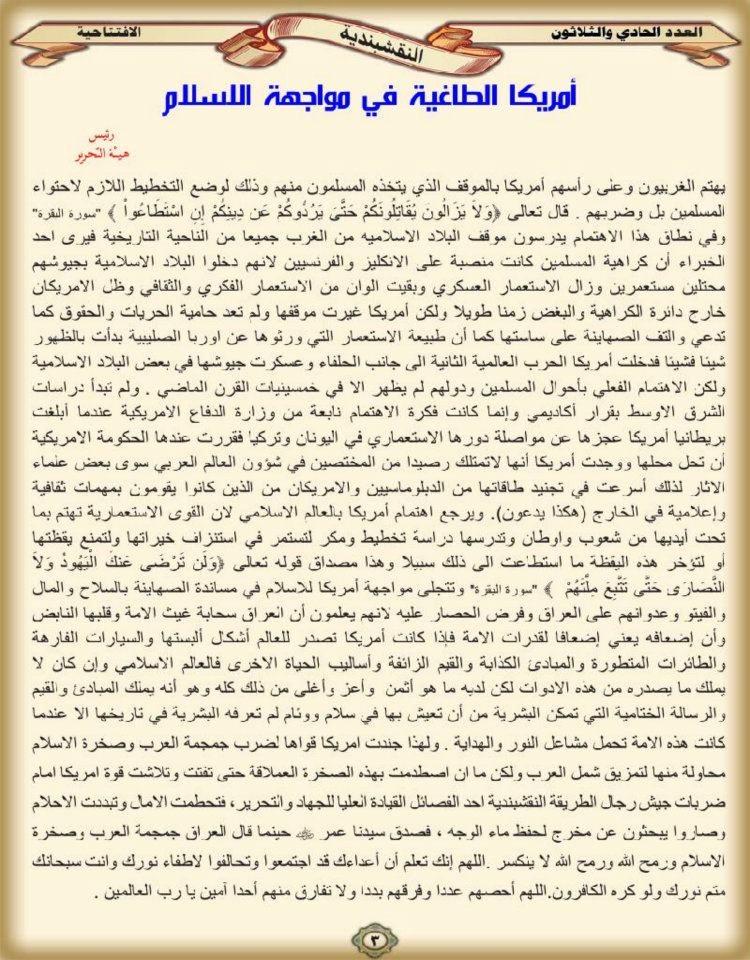 العدد الحادي والثلاثون
النقشبندية
الافتتاحية
أمريكا الطاغية في مواجهة الاسلام
رئيس
هيئة التحرير
يهتم الغربيون وعلى رأسهم أمريكا بالموقف الذي يتخذه المسلمون منهم وذلك لوضع التخطيط اللازم لاحتواء
المسلمين بل وضربهم . قال تعالى ﴿وَلاَ يَزَالُونَ يُقَاتِلُونَكُمْ حَتَّىَ يَرُدُّوكُمْ عَن دِينِكُمْ إِنِ اسْتَطَاعُواْ ﴾ "سورة البقرة"
وفي نطاق هذا الاهتمام يدرسون موقف البلاد الاسلاميه من الغرب جميعا من الناحية التاريخية فيرى احد
الخبراء أن كراهية المسلمين كانت منصبة على الانكليز والفرنسيين لانهم دخلوا البلاد الاسلامية بجيوشهم
محتلين مستعمرين وزال الاستعمار العسكري وبقيت الوان من الاستعمار الفكري والثقافي وظل الامريكان
خارج دائرة الكراهية والبغض زمنا طويلا ولكن أمريكا غيرت موقفها ولم تعد حامية الحريات والحقوق كما
تدعي والتف الصهاينة على ساستها كما أن طبيعة الاستعمار التي ورثوها عن اوربا الصليبية بدأت بالظهور
شيئا فشيئا فدخلت أمريكا الحرب العالمية الثانية الى جانب الحلفاء وعسكرت جيوشها في بعض البلاد الاسلامية
ولكن الاهتمام الفعلي بأحوال المسلمين ودولهم لم يظهر الا في خمسينيات القرن الماضي . ولم تبدأ دراسات
الشرق الاوسط بقرار أكاديمي وإنما كانت فكرة الاهتمام نابعة من وزارة الدفاع الامريكية عندما أبلغت
بريطانيا أمريكا عجزها عن مواصلة دورها الاستعماري في اليونان وتركيا فقررت عندها الحكومة الامريكية
أن تحل محلها ووجدت أمريكا أنها لاتمتلك رصيدا من المختصين في شؤون العالم العربي سوى بعض علماء
الاثار لذلك أسرعت في تجنيد طاقاتها من الدبلوماسيين والامريكان من الذين كانوا يقومون بمهمات ثقافية
وإعلامية في الخارج (هكذا يدعون). ويرجع اهتمام أمريكا بالعالم الاسلامي لان القوى الاستعمارية تهتم بما
تحت أيديها من شعوب واوطان وتدرسها دراسة تخطيط ومكر لتستمر في استنزاف خيراتها ولتمنع يقظتها
أو لتؤخر هذه اليقظة ما استطاعت الى ذلك سبيلا وهذا مصداق قوله تعالى ﴿وَلَن تَرْضَى عَنكَ الْيَهُودُ وَلاَ
النَّصَارَى حَتَّى تَتَّبِعَ مِلَّتَهُمْ ﴾ "سورة البقرة" وتتجلى مواجهة أمريكا للاسلام في مساندة الصهاينة بالسلاح والمال
والفيتو وعدوانهم على العراق وفرض الحصار عليه لانهم يعلمون أن العراق سحابة غيث الامة وقلبها النابض
وأن إضعافه يعني إضعافا لقدرات الامة فإذا كانت أمريكا تصدر للعالم أشكال ألبستها والسيارات الفارهة
والطائرات المتطورة والمبادئ الكذابة والقيم الزائفة وأساليب الحياة الاخرى فالعالم الاسلامي وإن كان لا
يملك ما يصدره من هذه الادوات لكن لديه ما هو أثمن وأعز وأغلى من ذلك كله وهو أنه يمتك المبادئ والقيم
والرسالة الختامية التي تمكن البشرية من أن تعيش بها في سلام ووئام لم تعرفه البشرية في تاريخها الا عندما
كانت هذه الامة تحمل مشاعل النور والهداية . ولهذا جندت امريكا قواها لضرب جمجمة العرب وصخرة الاسلام
محاولة منها لتمزيق شمل العرب ولكن ما ان اصطدمت بهذه الصخرة العملاقة حتى تفتت وتلاشت قوة امريكا امام
ضربات جيش رجال الطريقة النقشبندية احد الفصائل القيادة العليا للجهاد والتحرير، فتحطمت الامال وتبددت الاحلام
وصاروا يبحثون عن مخرج لحفظ ماء الوجه ، فصدق سيدنا عمر حينما قال العراق جمجمة العرب وصخرة
الاسلام ورمح الله ورمح الله لا ينكسر .اللهم إنك تعلم أن أعداءك قد اجتمعوا وتحالفوا لاطفاء نورك وانت سبحانك
متم نورك ولو كره الكافرون.اللهم أحصهم عددا وفرقهم بددا ولا تفارق منهم أحدا آمين يا رب العالمين .
٣